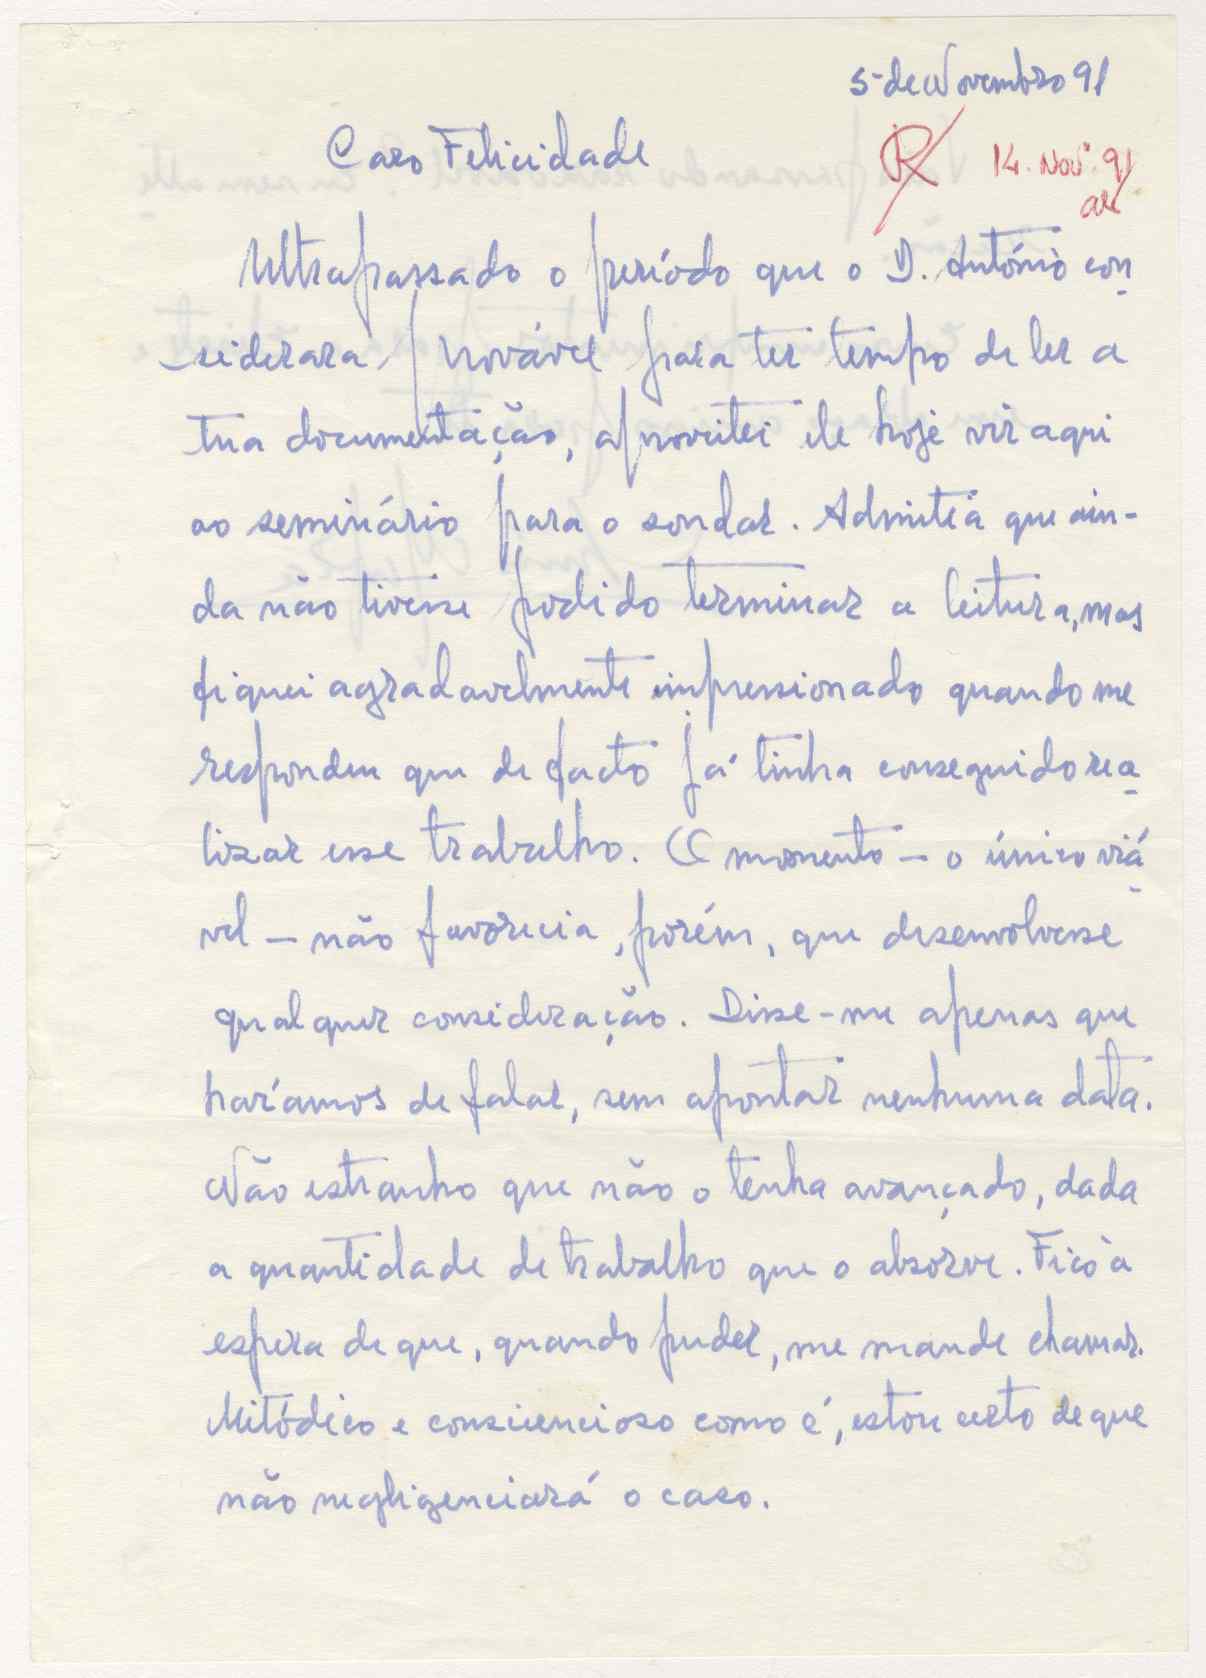 5-de Novembro 91
Caro Felicidade
R 14. Nov. 91
Ultrapassado o período que o D. António con
siderara provável para ter tempo de ler a
tua documentação, aproveitei ele hoje vir aqui
ao seminário para o sondar. Admitia que ain-
da não tivesse podido terminar a leitura, mas
fiquei agradavelmente impressionado quando me
respondeu que de facto já tinha conseguido rea
lizar esse trabalho. O momento — o único viá
vel — não favorecia, porém, que desenvolvesse
qualquer consideração. Disse-me apenas que
haríamos de falar, sem apontar nenhuma data.
Não estranho que não o tenha avançado, dada
a quantidade de trabalho que o absorve. Fico à
espera de que, quando puder, me mande chamar.
Metódico e consciencioso como é, estou certo de que
não negligenciará o caso.